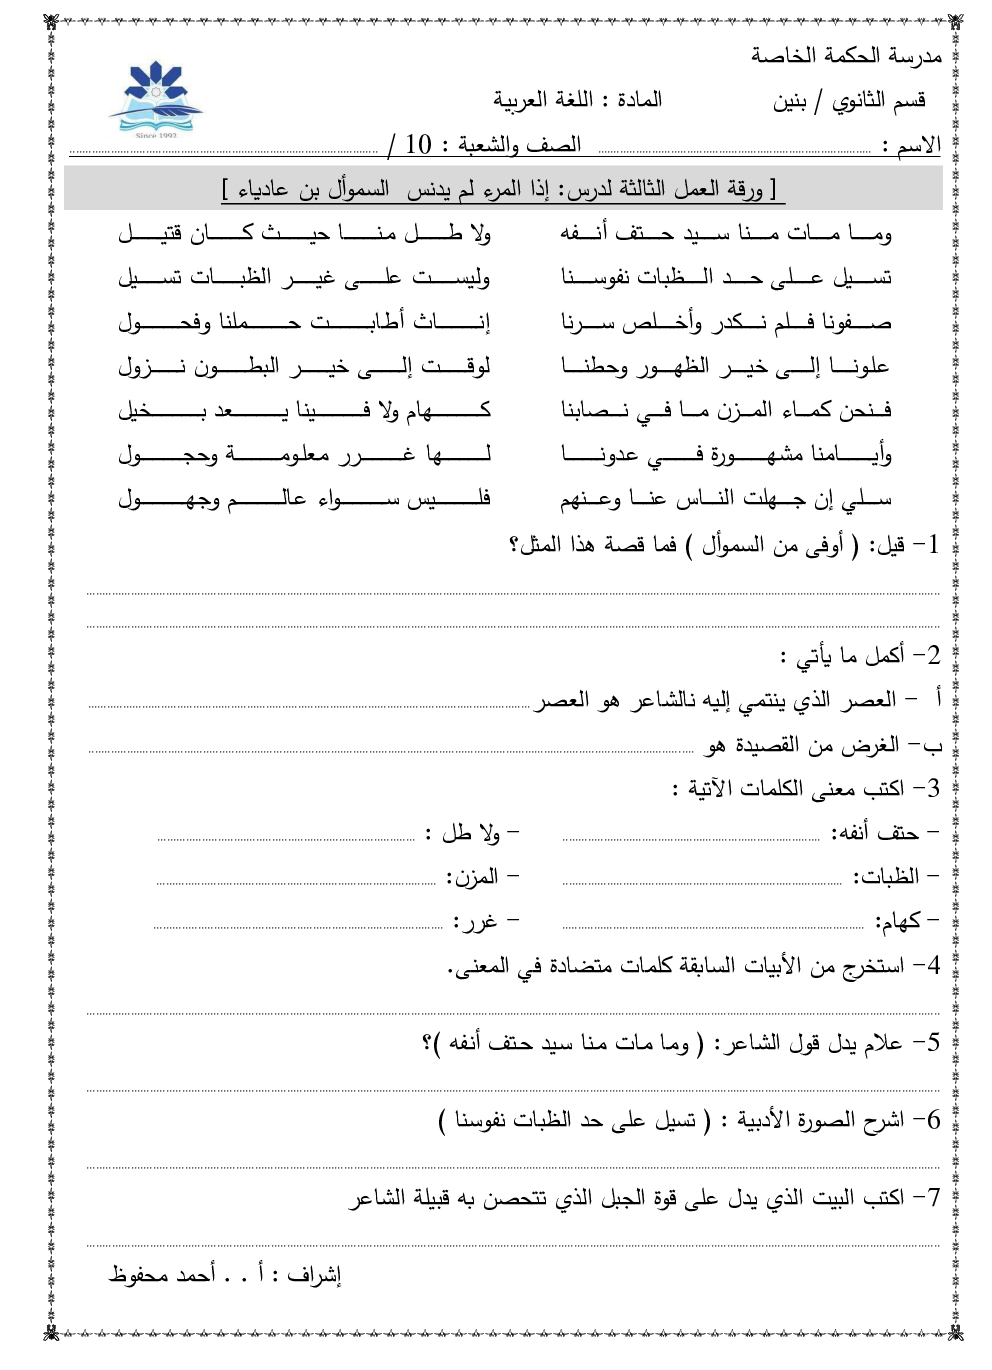 مدرسة الحكمة الخاصة
قسم الثانوي / بنين المادة : اللغة العربية
Since 1992
الاسم : الصف والشعبة : 10 /
[ ورقة العمل الثالثة لدرس: إذا المرء لم يدنس السموأل بن عادياء ]
ومـا مـات مـنا سـيد حـتف أنـفه ولا طـل منـا حيـث كـان قتيـل
تسـيل عـلى حـد الـظبات نفوسـنا وليسـت علـى غيـر الظبـات تسـيل
صـفونا فـلم نـكدر وأخـلص سـرنا إنـاث أطابـت حـملنا وفحـول
علونـا إلـى خيـر الظهـور وحطنـا لوقـت إلـى خيـر البطـون نـزول
فـنحن كمـاء المـزن مـا فـي نـصابنا كـهام ولا فـينا يـعد بـخيل
وأيـامنا مشهـورة فـي عدونـا لـها غـرر معلومـة وحجـول
سـلي إن جـهلت النـاس عنـا وعـنهم فلـيس سـواء عالـم وجهـول
1- قيل: ( أوفى من السموأل ) فما قصة هذا المثل؟
2- أكمل ما يأتي :
أ - العصر الذي ينتمي إليه نالشاعر هو العصر
ب- الغرض من القصيدة هو
3- اكتب معنى الكلمات الآتية :
- حتف أنفه: - ولا طل :
- الظبات: - المزن:
- كهام: - غرر:
4- استخرج من الأبيات السابقة كلمات متضادة في المعنى.
5- علام يدل قول الشاعر: ( وما مات منا سيد حتف أنفه )؟
6- اشرح الصورة الأدبية : ( تسيل على حد الظبات نفوسنا )
7- اكتب البيت الذي يدل على قوة الجبل الذي تتحصن به قبيلة الشاعر
إشراف : أ . . أحمد محفوظ